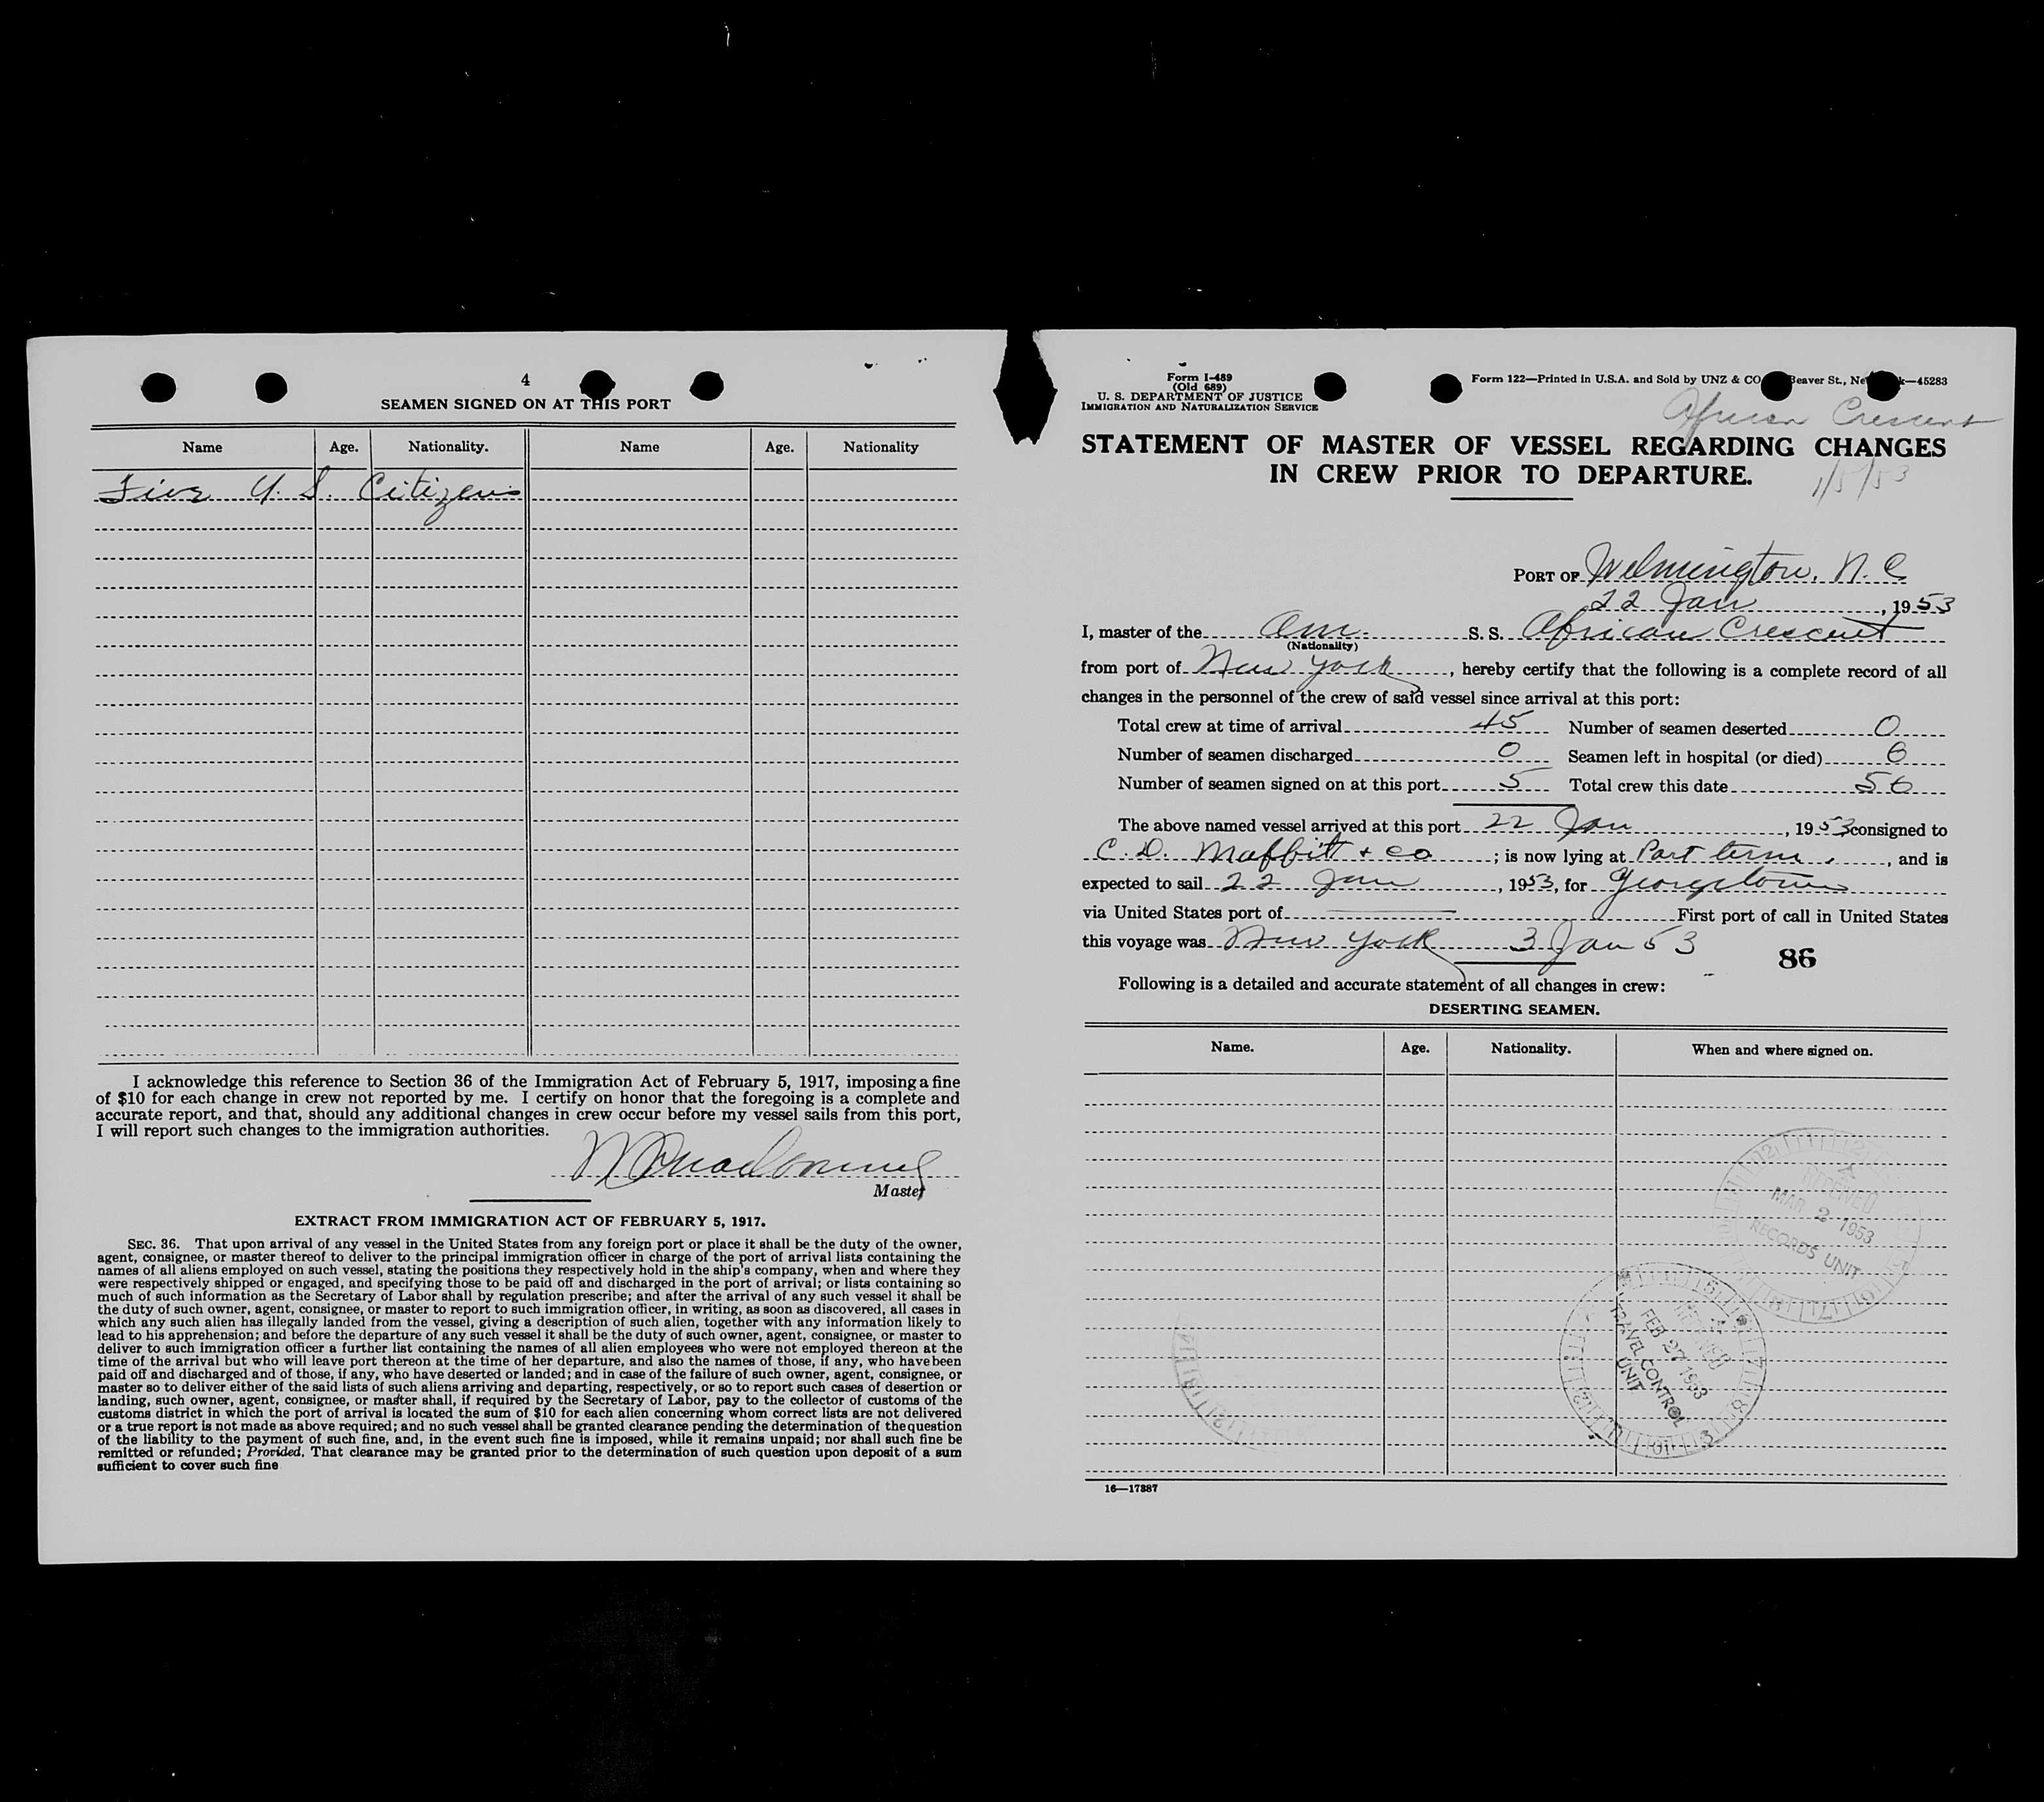 4
SEAMEN SIGNED ON AT THIS PORT
Name Age. Nationality. Name Age. Nationality
Five U. S. Citizens
I acknowledge this reference to Section 36 of the Immigration Act of February 5, 1917, imposing a fine
of $10 for each change in crew not reported by me. I certify on honor that the foregoing is a complete and
accurate report, and that, should any additional changes in crew occur before my vessel sails from this port,
I will report such changes to the immigration authorities.
Master
EXTRACT FROM IMMIGRATION ACT OF FEBRUARY 5, 1917.
SEC. 36. That upon arrival of any vessel in the United States from any foreign port or place it shall be the duty of the owner,
agent, consignee, or master thereof to deliver to the principal immigration officer in charge of the port of arrival lists containing the
names of all aliens employed on such vessel, stating the positions they respectively hold in the ship's company, when and where they
were respectively shipped or engaged, and specifying those to be paid off and discharged in the port of arrival; or lists containing so
much of such information as the Secretary of Labor shall by regulation prescribe; and after the arrival of any such vessel it shall be
the duty of such owner, agent, consignee, or master to report to such immigration officer, in writing, as soon as discovered, all cases in
which any such alien has illegally landed from the vessel, giving a description of such alien, together with any information likely to
lead to his apprehension; and before the departure of any such vessel it shall be the duty of such owner, agent, consignee, or master to
deliver to such immigration officer a further list containing the names of all alien employees who were not employed thereon at the
time of the arrival but who will leave port thereon at the time of her departure, and also the names of those, if any, who have been
paid off and discharged and of those, if any, who have deserted or landed; and in case of the failure of such owner, agent, consignee, or
master so to deliver either of the said lists of such aliens arriving and departing, respectively, or so to report such cases of desertion or
landing, such owner, agent, consignee, or master shall, if required by the Secretary of Labor, pay to the collector of customs of the
customs district in which the port of arrival is located the sum of $10 for each alien concerning whom correct lists are not delivered
or a true report is not made as above required; and no such vessel shall be granted clearance pending the determination of the question
of the liability to the payment of such fine, and, in the event such fine is imposed, while it remains unpaid; nor shall such fine be
remitted or refunded; Provided, That clearance may be granted prior to the determination of such question upon deposit of a sum
sufficient to cover such fine
Form I-489
(Old 689)
U. S. DEPARTMENT OF JUSTICE
IMMIGRATION AND NATURALIZATION SERVICE
Form 122—Printed in U.S.A. and Sold by UNZ & CO Beaver St., —45283
African Crescent
STATEMENT OF MASTER OF VESSEL REGARDING CHANGES
IN CREW PRIOR TO DEPARTURE.
1/5/53
PORT OF Wilmington, N. C
22 Jan, 1953
I, master of the Am. S. S. African Crescent
(Nationality)
from port of New York, hereby certify that the following is a complete record of all
changes in the personnel of the crew of said vessel since arrival at this port:
Total crew at time of arrival 45 Number of seamen deserted 0
Number of seamen discharged 0 Seamen left in hospital (or died) 0
Number of seamen signed on at this port 5 Total crew this date 50
The above named vessel arrived at this port 22 Jan, 1953 consigned to
C. D. Maffitt + Co; is now lying at Port term., and is
expected to sail 22 Jan, 1953, for Georgetown
via United States port of First port of call in United States
this voyage was New York 3 Jan 53
86
Following is a detailed and accurate statement of all changes in crew:
DESERTING SEAMEN.
Name. Age. Nationality. When and where signed on.
RECEIVED
MAR 2 1953
RECORDS UNIT
RECEIVED
FEB 27 1953
TRAVEL CONTROL
UNIT
16—17387